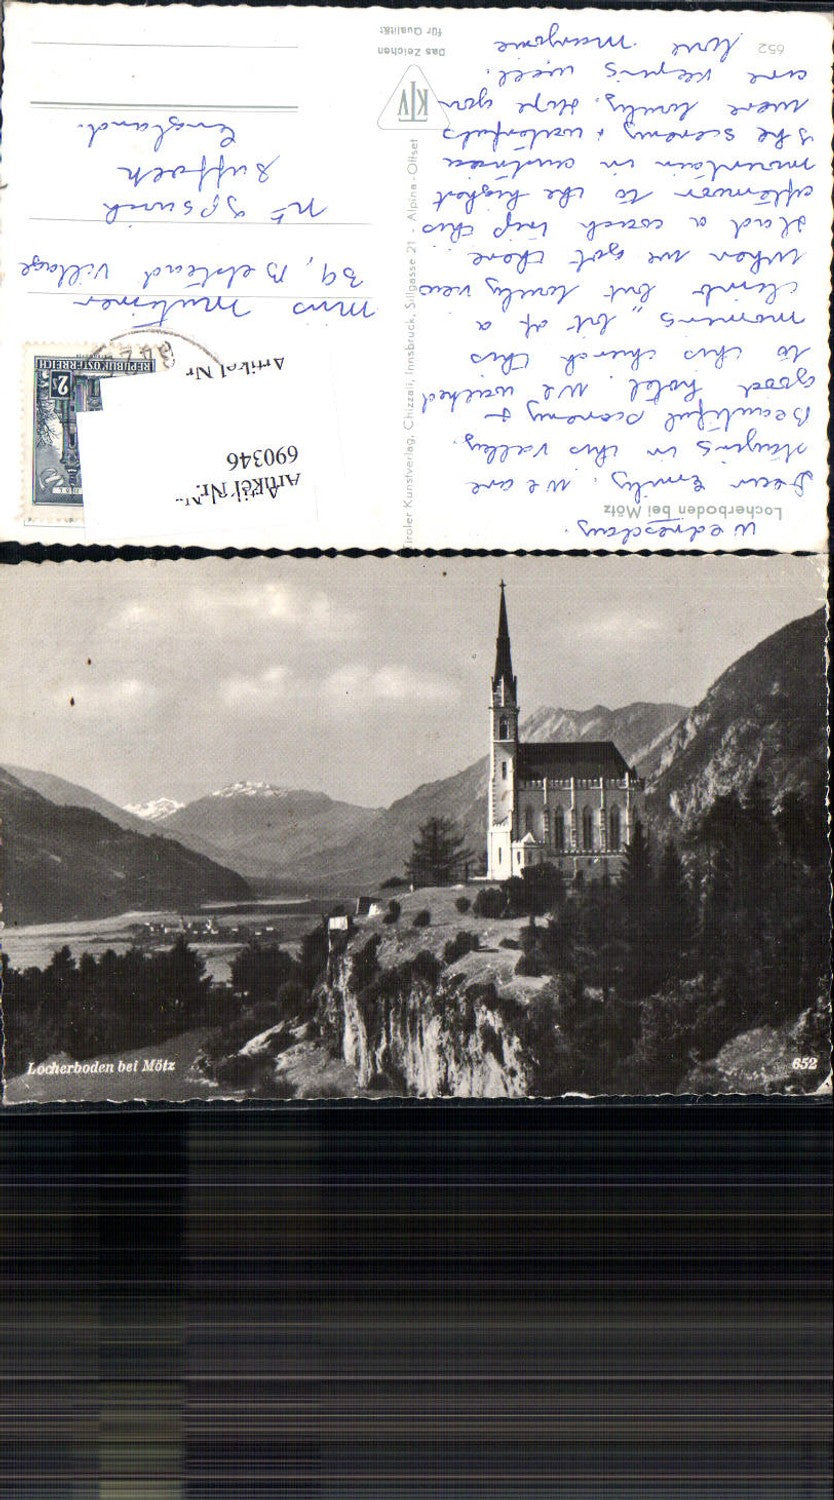 Locherboden bei Mötz
Wednesday.
Dear Emily, We are
staying in this valley.
Beautiful scenery +
good hotel. We walked
to this church this
morning, bit of a
climb but lovely view
when we got there.
Had a coach trip this
afternoon to the highest
mountain in Austria
The scenery + waterfalls
were lovely. Hope you
are keeping well.
love Marjorie
652
Tiroler Kunstverlag, Chizzali, Innsbruck, Sillgasse 21 - Alpina-Offset
KTV
Das Zeichen
für Qualität
REPUBLIK ÖSTERREICH
2 S
Artikel Nr.
690346
Artikel Nr.
Miss Mutimer
39, Belstead Village
Nr Ipswich
Suffolk
England.
Locherboden bei Mötz
652